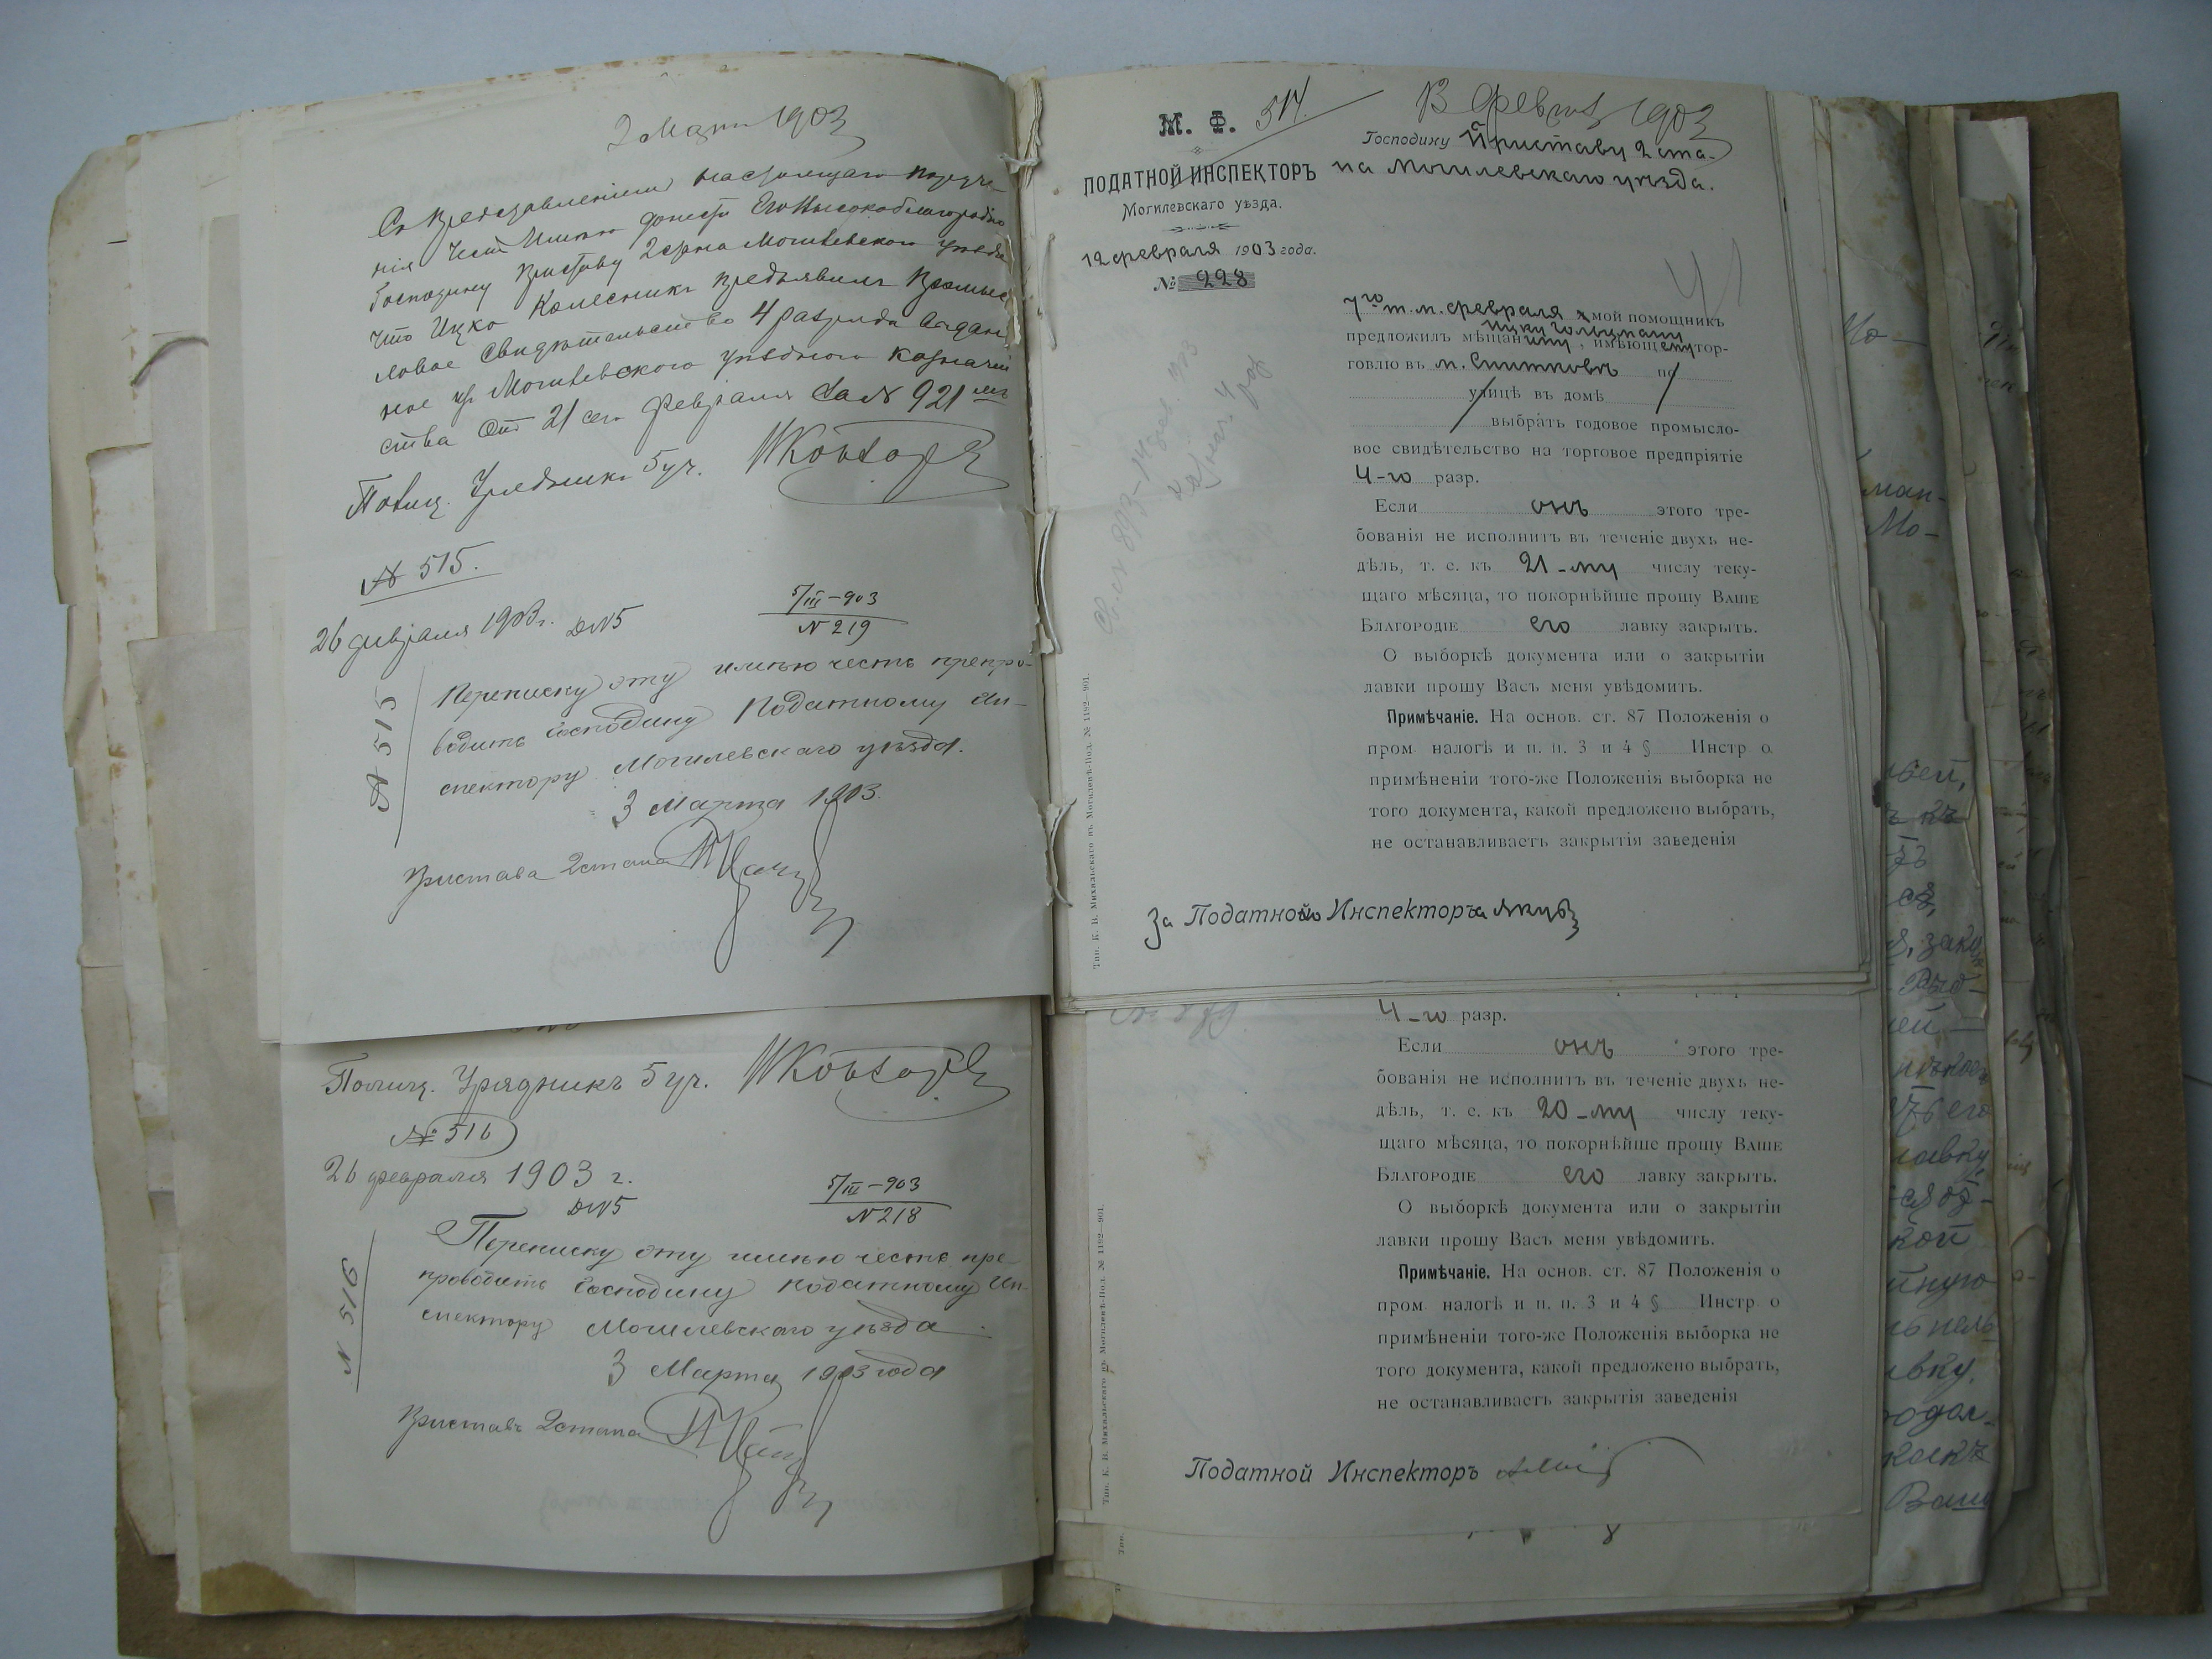 2 Марта 1903
Съ представленіемъ настоящаго поруче-
нія Честь Имѣю донести Его Высокоблагородію
Господину Приставу 2 стана Могилевского уѣзда
что Ицко Колесникъ предъявилъ Промыс
ловое Свидѣтельство 4 разряда выдан
ное изъ Могилевского уѣздного Казначей
ства отъ 21 сего Февраля за № 921 мъ
Полиц. Урядникъ 5 уч.
№ 515.
26 февраля 1903 г.
Д № 5
5/III – 903
№ 219
№ 515
Переписку эту имѣю честь препро-
водить Господину Податному Ин-
спектору Могилевскаго уѣзда.
3 Марта 1903.
Пристава 2 стана
Полиц. Урядникъ 5 уч.
№ 516
26 февраля 1903 г.
Д № 5
5/III – 903
№ 218
№ 516
Переписку эту имѣю честь пре-
проводить Господину Податному Ин-
спектору Могилевскаго уѣзда.
3 Марта 1903 года
Приставъ 2 стана
М. Ф.
514.
ПОДАТНОЙ ИНСПЕКТОРЪ
Могилевскаго уѣзда.
12 февраля 1903 года.
№ 228
13 Февраля 1903
Господину Приставу 2 ста-
на Могилевскаго уѣзда.
7го т. м. февраля мой помощникъ
Ицку Гольцману
предложилъ мѣщанину, имѣющему тор-
говлю въ м. по
улицѣ въ домѣ
выбрать годовое промысло-
вое свидѣтельство на торговое предпріятіе
4-го разр.
Если онъ этого тре-
бованія не исполнитъ въ теченіе двухъ не-
дѣль, т. е. къ 21-му числу теку-
щаго мѣсяца, то покорнѣйше прошу ВАШЕ
БЛАГОРОДІЕ его лавку закрыть.
О выборкѣ документа или о закрытіи
лавки прошу Васъ меня увѣдомить.
Примѣчаніе. На основ. ст. 87 Положенія о
пром. налогѣ и п. п. 3 и 4 § Инстр о
примѣненіи того-же Положенія выборка не
того документа, какой предложено выбрать,
не останавливаетъ закрытія заведенія
За Податного Инспектора
Тип. К. В. Михальскаго въ Могилевѣ-Под. № 1192—901.
4-го разр.
Если онъ этого тре-
бованія не исполнитъ въ теченіе двухъ не-
дѣль, т. е. къ 20-му числу теку-
щаго мѣсяца, то покорнѣйше прошу ВАШЕ
БЛАГОРОДІЕ его лавку закрыть.
О выборкѣ документа или о закрытіи
лавки прошу Васъ меня увѣдомить.
Примѣчаніе. На основ. ст. 87 Положенія о
пром налогѣ и п. п. 3 и 4 § Инстр о
примѣненіи того-же Положенія выборка не
того документа, какой предложено выбрать,
не останавливаетъ закрытія заведенія
Податной Инспекторъ
Тип. К. В. Михальскаго въ Могилевѣ-Под. № 1192—901.